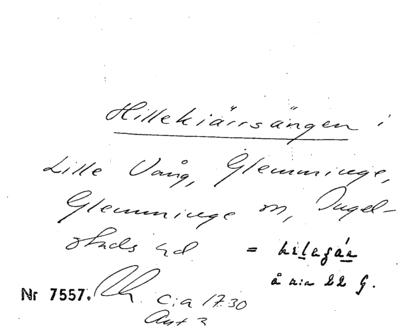 Hillekiärrsängen i
Lille Vång, Glemminge,
Glemminge sn, Ingel-
stads hd =
å n:a 22 G.
Nr 7557. c:a 1730